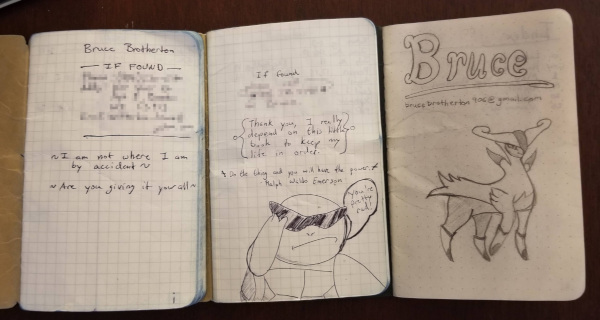 Bruce Brotherton
IF FOUND
~ I am not where I am
by accident ~
~ Are you giving it your all ~
If found
Thank you, I really
depend on this little
book to keep my
life in order.
Do the thing and you will have the power.
Ralph Waldo Emerson
you're
pretty
rad!
Bruce